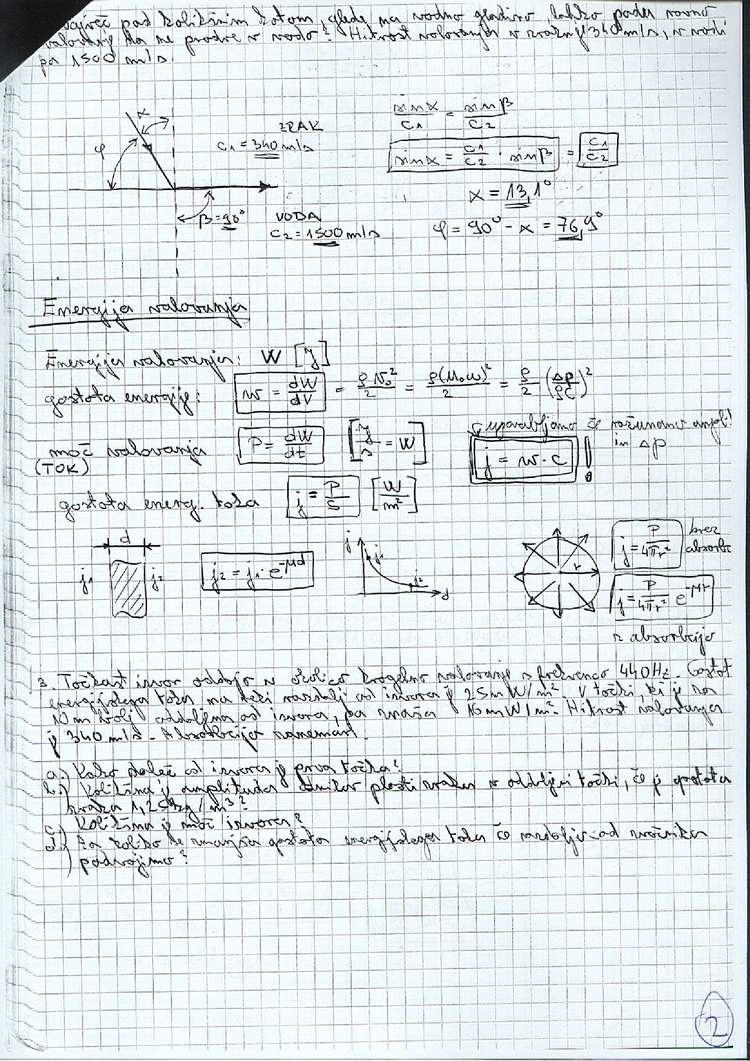 največ pod kolikšnim kotom, glede na vodno gladino, lahko pade ravno
valovanje da ne prodre v vodo? Hitrost valovanja v zraku je 340 m/s, v vodi
pa 1500 m/s.
α
φ
ZRAK
c₁ = 340 m/s
β = 90°
VODA
c₂ = 1500 m/s
sinα/c₁ = sinβ/c₂
sinα = c₁/c₂ · sinβ = c₁/c₂
α = 13,1°
φ = 90° - α = 76,9°
Energija valovanja
Energija valovanja: W [J]
gostota energije: w = dW/dV = ρv₀²/2 = ρ(u₀ω)²/2 = ρ/2 (Δp/ρc)²
moč valovanja P = dW/dt [J/s = W]
(TOK)
uporabljamo če računamo ampl.
in Δp
j = w · c !
gostota energ. toka j = P/S [W/m²]
d
j₁ j₂
j₂ = j₁ · e^-μd
j
j₁
j₂
d
r
j = P/4πr² brez
absorb.
j = P/4πr² e^-μr
z absorbcijo
3. Točkast izvor oddaja v okolico krogelno valovanje s frekvenco 440 Hz. Gostota
energijskega toka na neki razdalji od izvora je 25 mW/m². V točki, ki je za
10 m bolj oddaljena od izvora, pa znaša 16 mW/m². Hitrost valovanja
je 340 m/s. Absorbcijo zanemari.
a.) Kako daleč od izvora je prva točka?
b.) Kolikšna je amplituda zraka v oddaljeni točki, če je gostota
zraka 1,25 kg/m³?
c.) Kolikšna je moč izvora?
d.) Za koliko se zmanjša gostota energijskega toka če razdaljo od zvočnika
podvojimo?
2